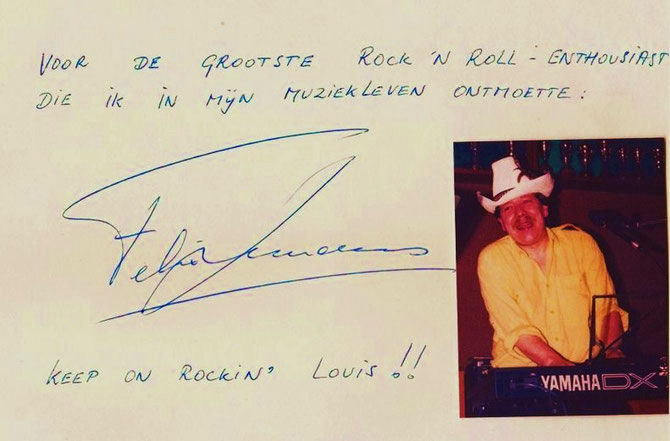 VOOR DE GROOTSTE ROCK 'N ROLL - ENTHOUSIAST
DIE IK IN MIJN MUZIEKLEVEN ONTMOETTE:
Felix
YAMAHA DX
KEEP ON ROCKIN' LOUIS!!